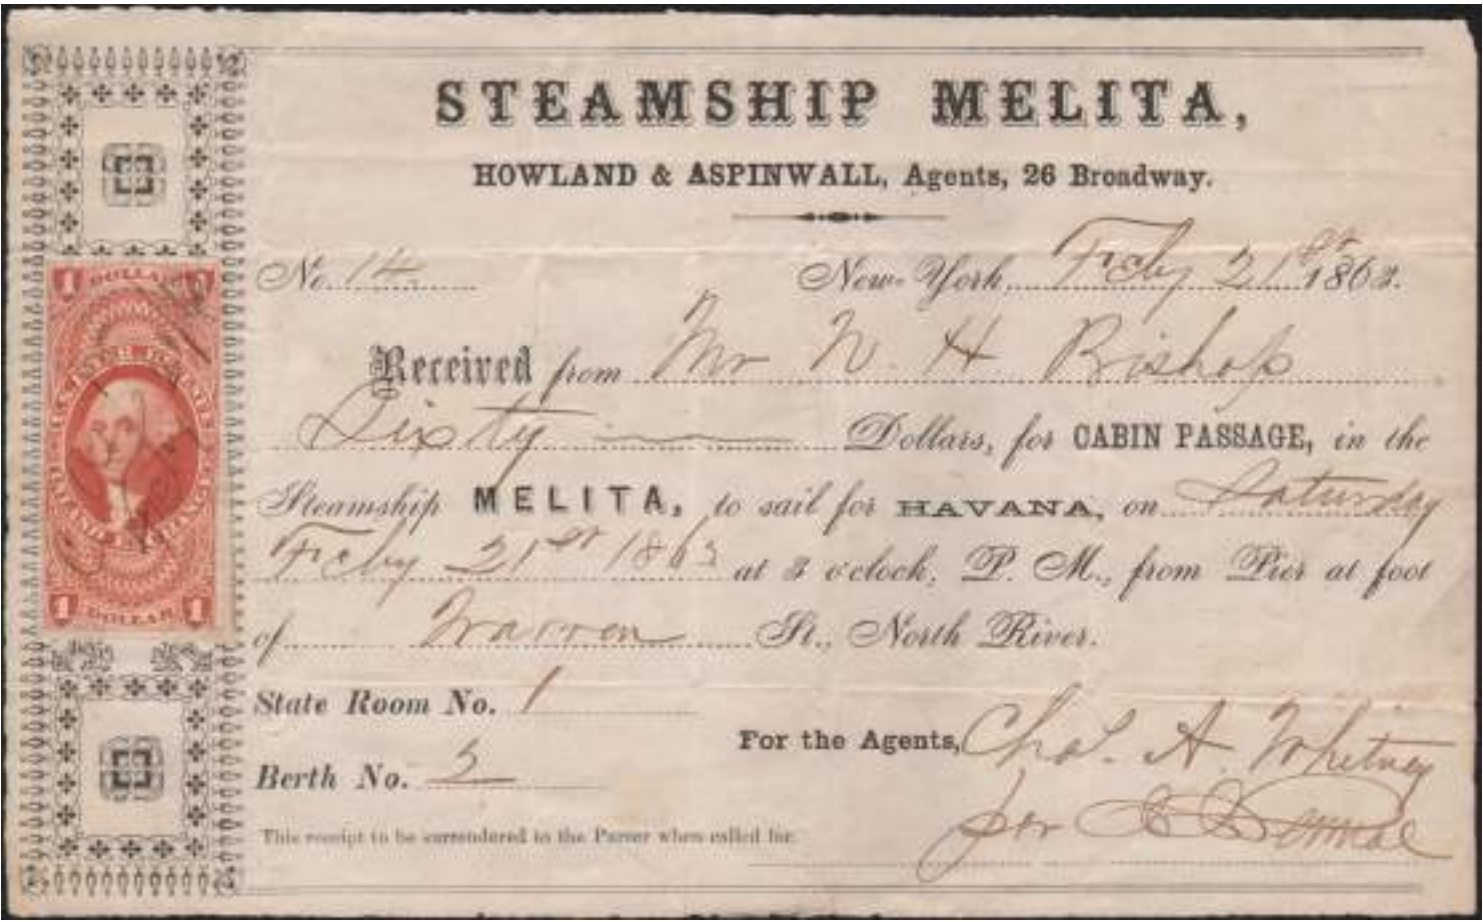 STEAMSHIP MELITA,
HOWLAND & ASPINWALL, Agents, 26 Broadway.
No. 14 New-York, Feby 21st 1863.
Received from Mr N. H Bishop
Sixty Dollars, for CABIN PASSAGE, in the
Steamship MELITA, to sail for HAVANA, on Saturday
Feby 21st 1863 at 3 o'clock, P. M., from Pier at foot
of Warren St., North River.
State Room No. 1
For the Agents, Chas. A. Whitney
Berth No.
per
This receipt to be surrendered to the Purser when called for.
1 DOLLAR 1
UNITED STATES
INLAND EXCHANGE
1 DOLLAR 1